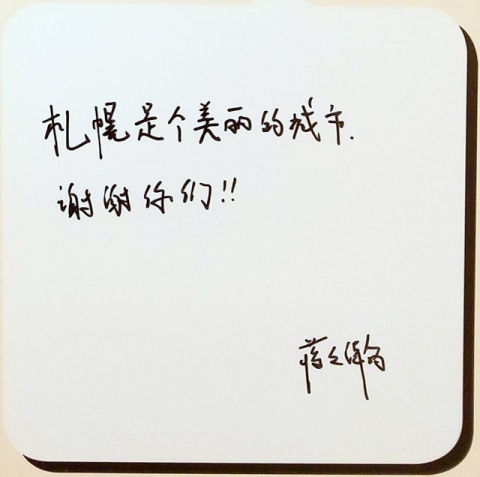 札幌是个美丽的城市.
谢谢你们!!